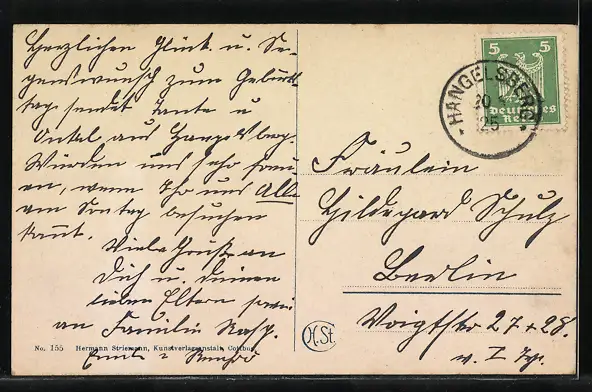 Herzlichen Glück u. Se-
genswunsch zum Geburts
tag sendet Tante u
Onkel aus Hangelsberg.
Würden uns sehr freu-
en, wenn Ihr uns Alle
am Sontag besuchen
könnt.
Viele Grüße an
Dich u. deinen
lieben Eltern sowie
an Familie
5 5
Deutsches
Reich
HANGELSBERG
20
25
Fräulein
Hildegard Schulz
Berlin
Voigtstr 27+28.
v. I Tr.
H.St.
No. 155 Hermann Striemann, Kunstverlagsanstalt, Cottbus